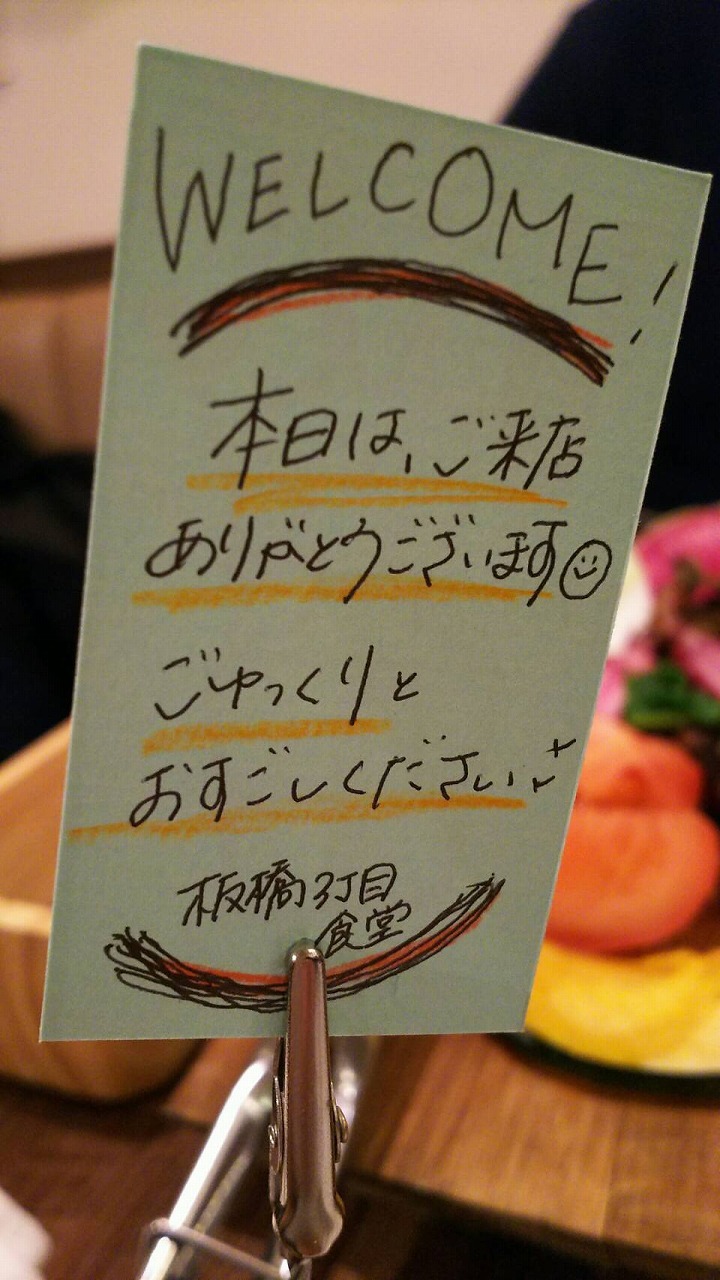 WELCOME!
本日は、ご来店
ありがとうございます☺
ごゆっくりと
おすごしください。
板橋3丁目
食堂